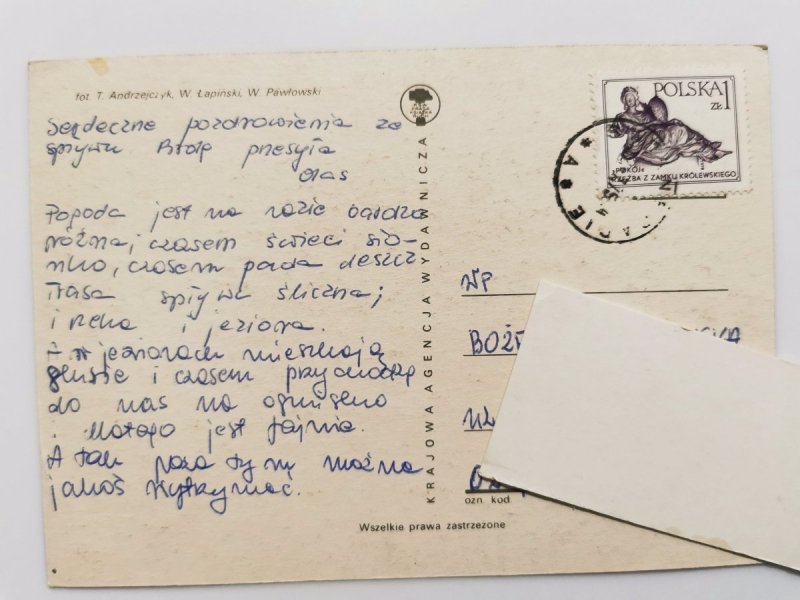 fot. T. Andrzejczyk, W. Łapiński, W. Pawłowski
Serdeczne pozdrowienia ze
spływu Brdą przesyła
Olas
Pogoda jest na razie bardzo
różna, czasem świeci sło-
nko, czasem pada deszcz
Trasa spływu śliczna;
i rzeka i jeziora.
jeziorach mieszkają
i czasem przychodzą
do nas na ognisko
i dlatego jest fajnie.
A tak poza tym można
jakoś wytrzymać.
KRAJOWA AGENCJA WYDAWNICZA
POLSKA 1
ZŁ
POKÓJ
RZEŹBA Z ZAMKU KRÓLEWSKIEGO
WP
BOŻE
UL
ozn. kod
Wszelkie prawa zastrzeżone